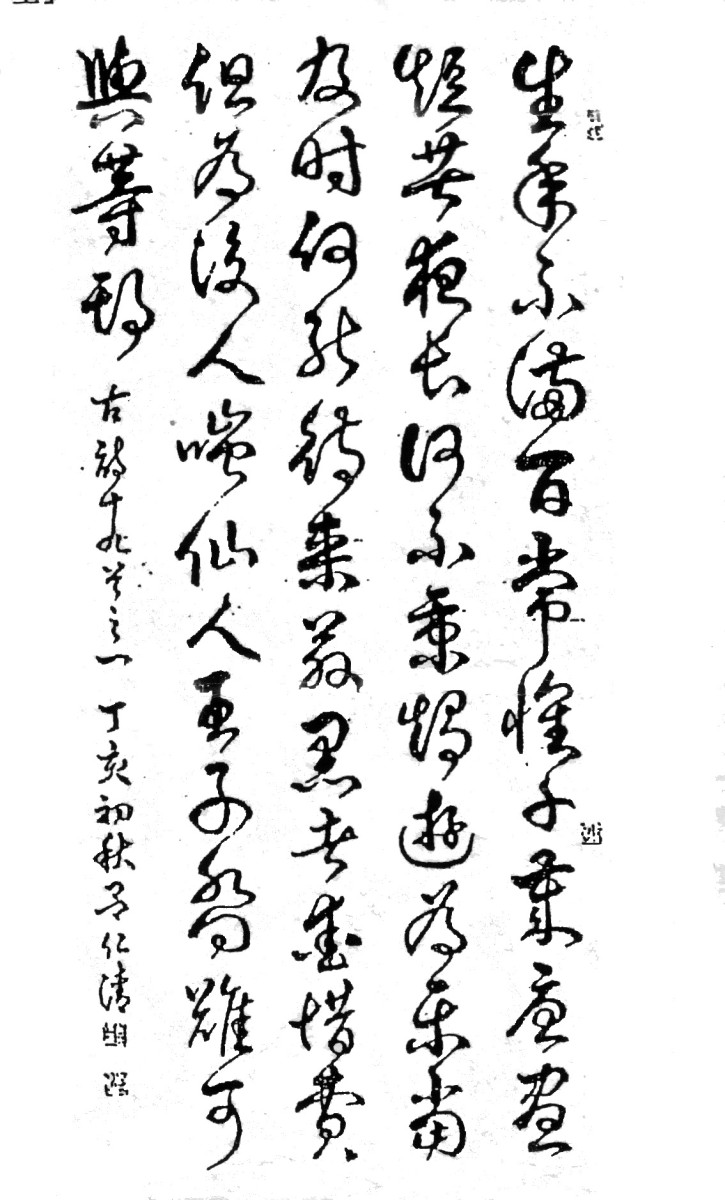 生年不滿百常懷千歲憂晝
短苦夜長何不秉燭遊為樂當
及时何能待來茲愚者愛惜費
但為後人嗤仙人王子喬難可
與等期 古詩十九首之一 丁亥初秋吕仁清